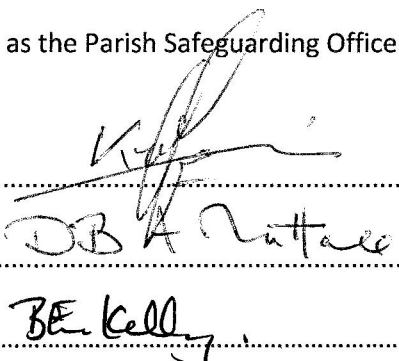 as the Parish Safeguarding Office
DB A Nuttall
BEn Kelly.